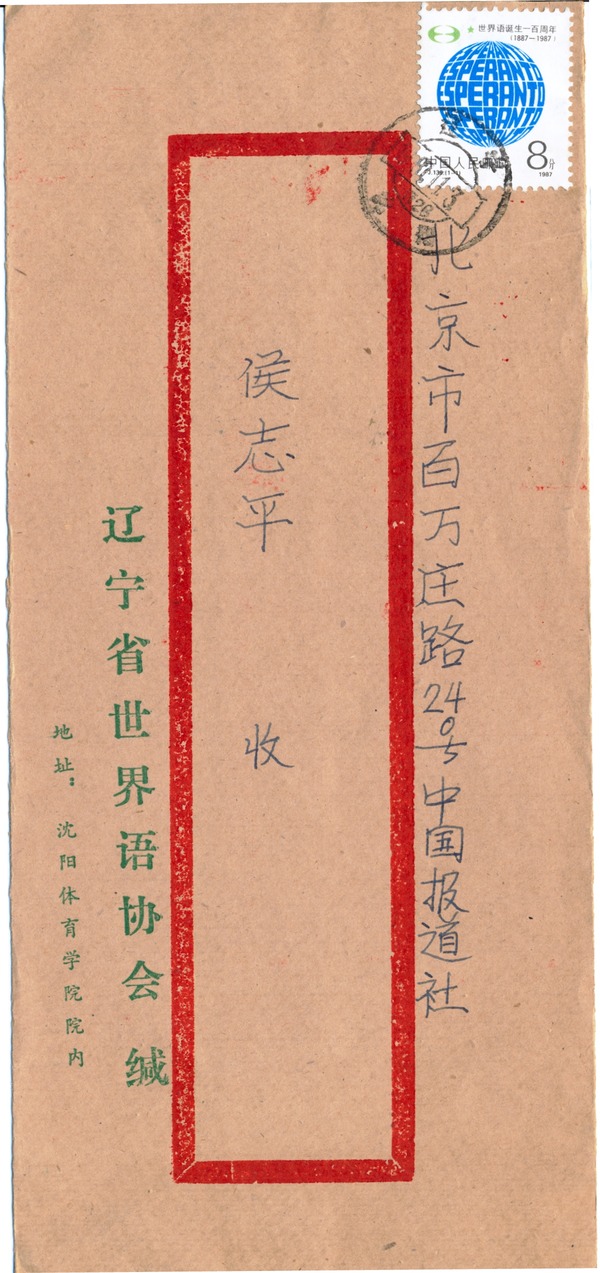 世界语诞生一百周年
(1887—1987)
ESPERANTO
ESPERANTO
ESPERANTO
ESPERANTO
中国人民邮政
8分
J.139.(1-1)
1987
北京市百万庄路24号中国报道社
侯志平 收
辽宁省世界语协会 缄
地址：沈阳体育学院院内